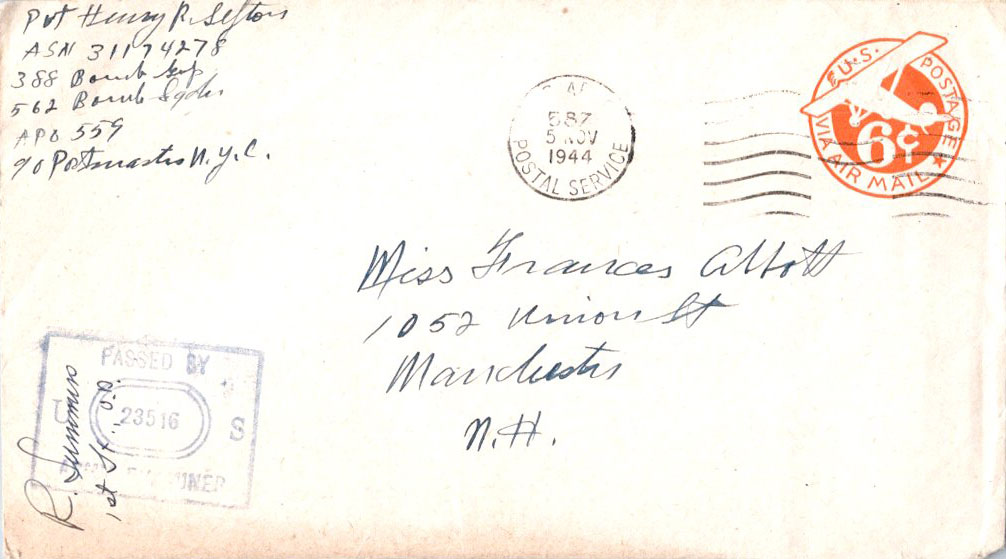 Pvt Henry R. Sefton
ASN 31174278
388 Bomb Grp
562 Bomb Sqdn
APO 559
% Postmaster N.Y.C.
587
5 NOV
1944
POSTAL SERVICE
U.S. POSTAGE
6¢
VIA AIR MAIL
Miss Frances Abbott
1052 Union St
Manchester
N.H.
PASSED BY
U S
23516
ARMY EXAMINER
R. Summers
1st Lt.